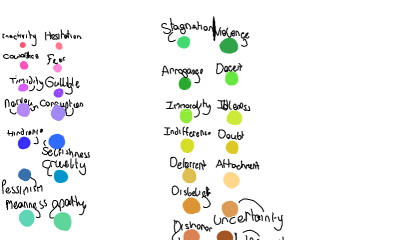 Inactivity Hesitation
Cowardice Fear
Timidity Gullible
Nervous Corruption
Hindrance
Selfishness
Cruelity
Pessinism
Meanness apathy
Stagnation Violence
Arrogance Deceit
Immorality Idleness
Indifference Doubt
Deterrent Attachment
Disbelief
uncertainty
Dishonor